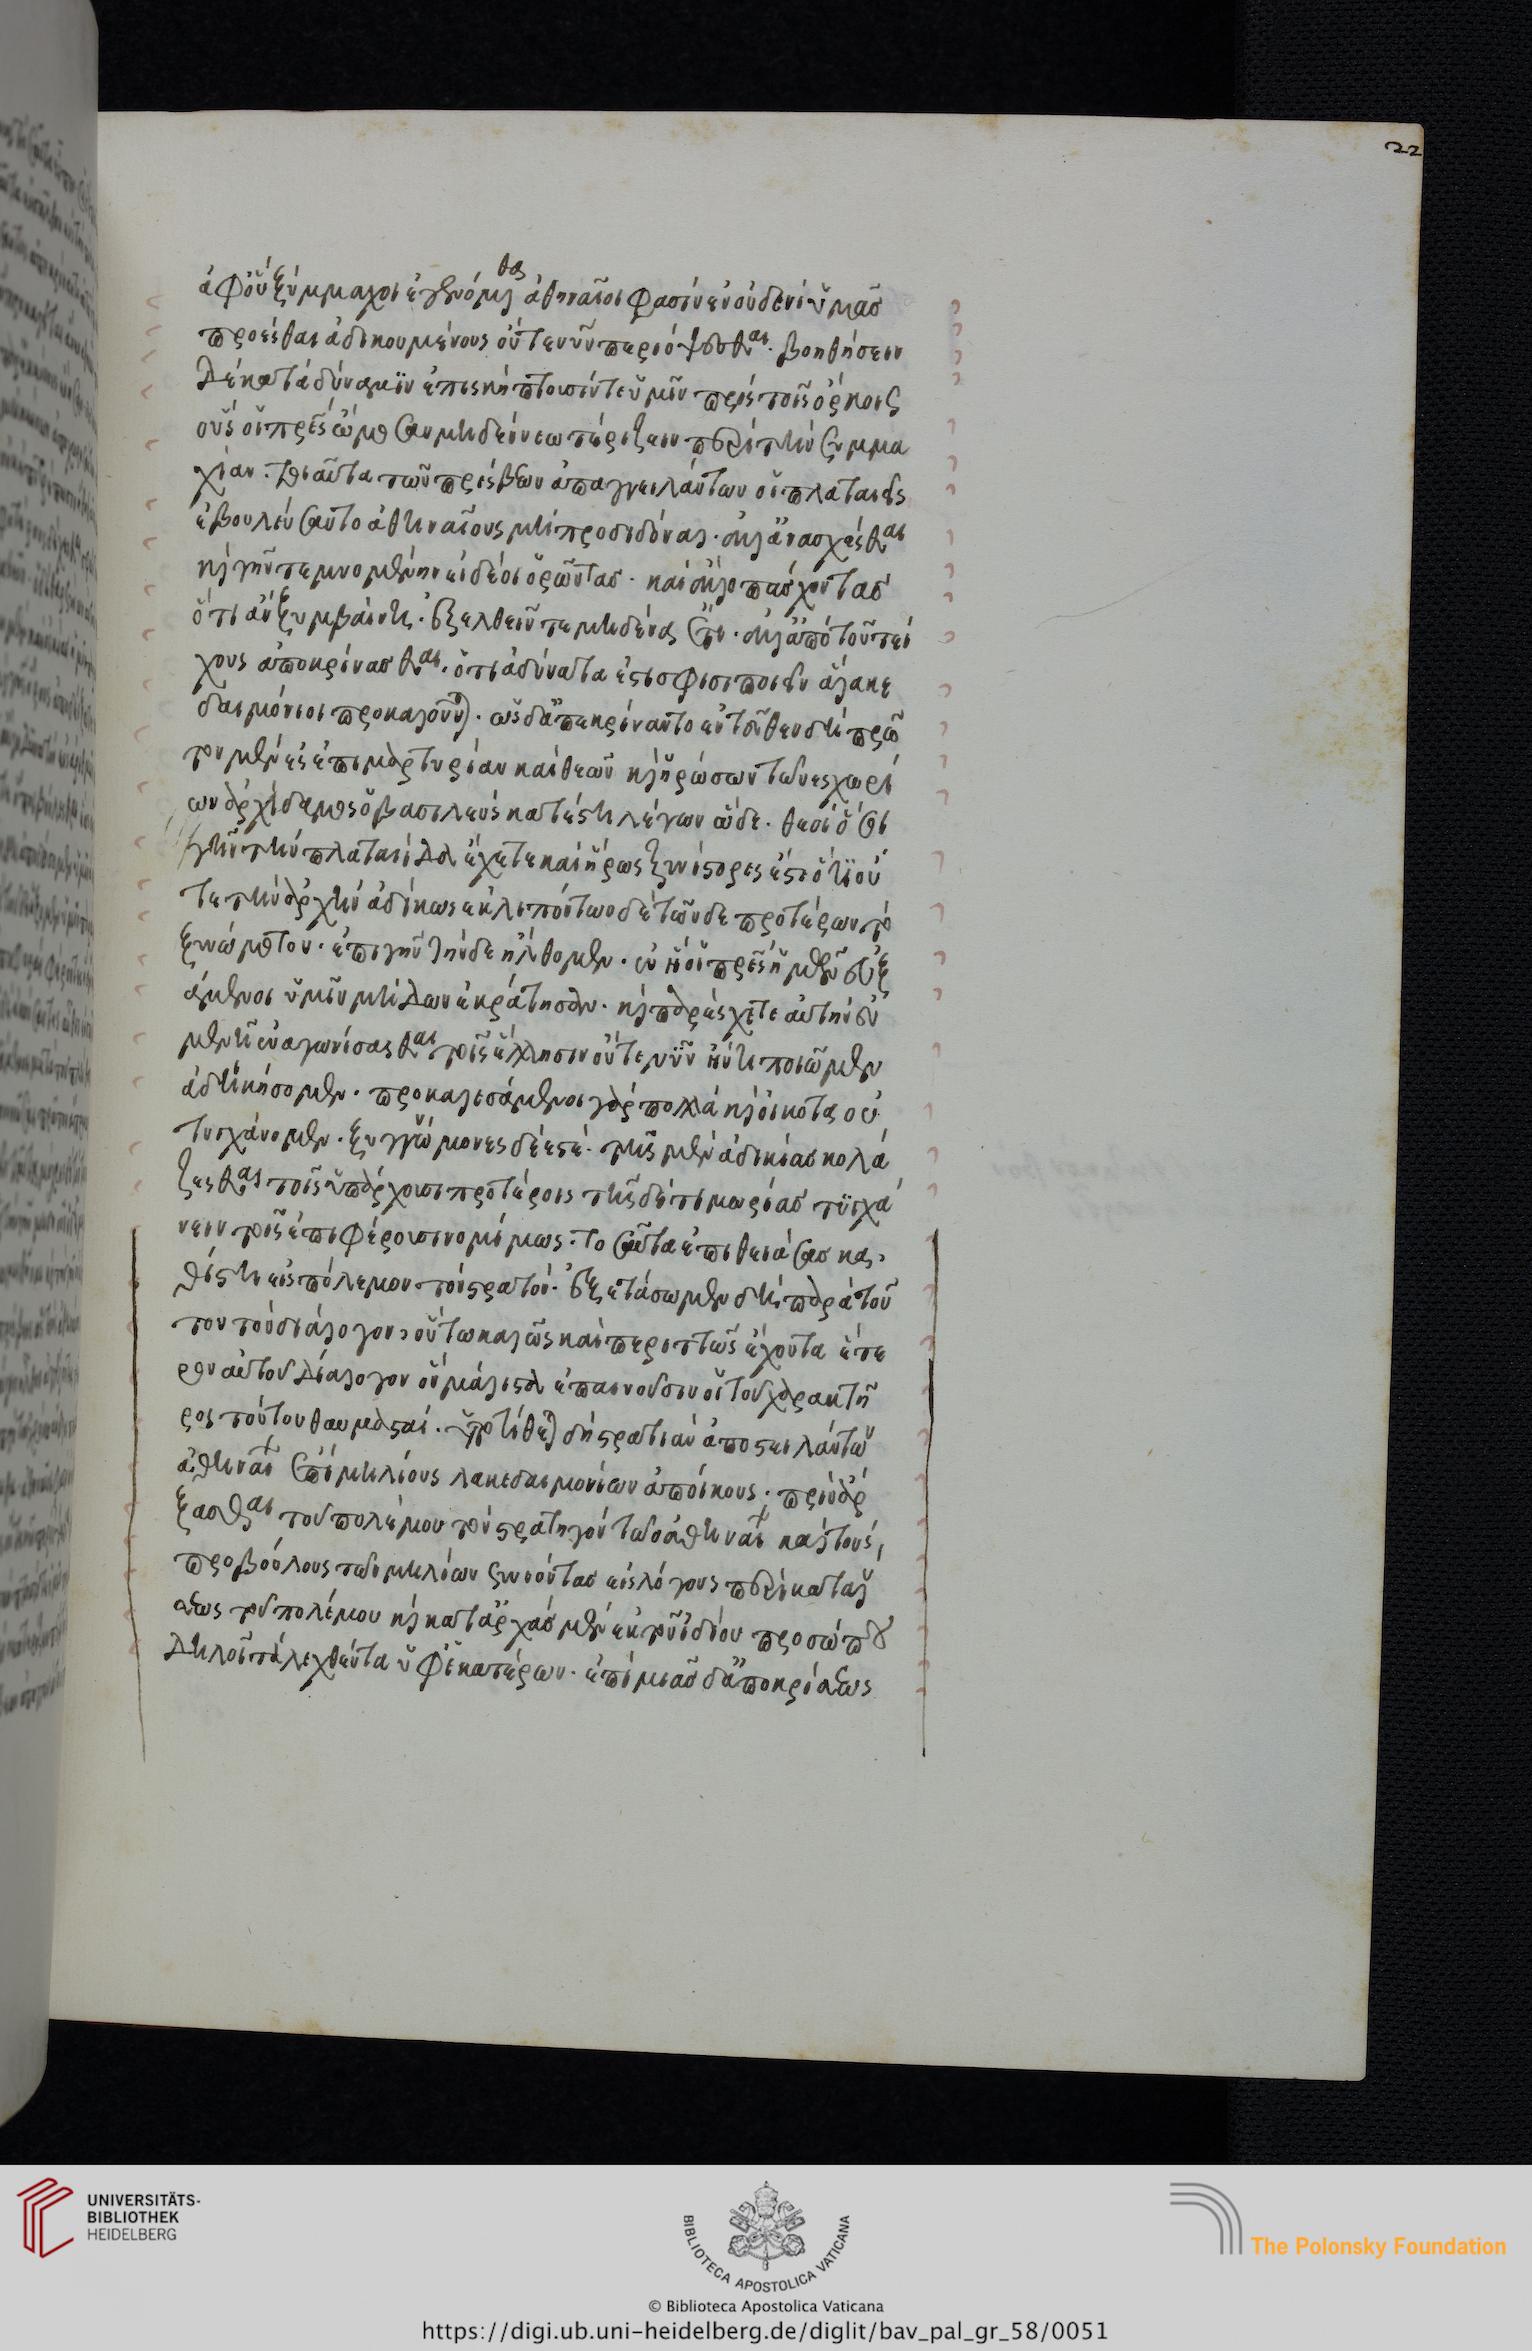 22
ἀφοῦ ξύμμαχοι ἐγενόμεθα ἀθηναῖοι φασὶν ἐν οὐδενὶ ὑμᾶσ
προέσθαι ἀδικουμένους οὔτε νῦν περιόψεσθαι. βοηθήσειν
δὲ κατὰ δύναμϊν ἐπισκήπτουσίν τε ὑμῖν πρὸς τοῖς ὅρκοις
οὓς οἱ πρες ὤμοσαν μηδὲν νεωτερίζειν περὶ τὴν ξυμμα
χίαν. τοιαῦτα τῶν πρέσβεων ἀπαγγειλάντων οἱ πλαταιεῖς
ἐβουλεύσαντο ἀθηναίους μὴ προδιδόναι. ἀλλ' ἀνασχέσθαι
καὶ γῆν τεμνομένην εἰ δέοι ὁρῶντασ. καὶ ἄλλο πάσχοντασ
ὅτι ἂν ξυμβαίνη. ἐξελθεῖν τε μηδένα ἔτι. ἀλλ' ἀπὸ τοῦ τεί
χους ἀποκρίνασθαι. ὅτι ἀδύνατα ἐστι σφισι ποιεῖν ἃ λακε
δαιμόνιοι προκαλοῦνται. ὡς δ' ἀπεκρίναντο ἐντεῦθεν δὴ πρῶ
τον μὲν ἐς ἐπιμαρτυρίαν καὶ θεῶν καὶ ἡρώων τῶν ἐγχωρί
ων ἀρχίδαμος ὁ βασιλεὺς κατέστη λέγων ὧδε. θεοὶ ὅσοι
γῆν τὴν πλαταιίδα ἔχετε καὶ ἥρωες ξυνίστορες ἐστὲ ὅτι οὔ
τε τὴν ἀρχὴν ἀδίκως ἐκλιπόντων δὲ τῶνδε προτέρων τὸ
ξυνώμοτον. ἐπὶ γῆν τήνδε ἤλθομεν. ἐν ᾗ οἱ πρες ἡμῶν εὐξ
άμενοι ὑμῖν μήδων ἐκράτησαν. καὶ παρέσχετε αὐτὴν εὐ
μενῆ ἐναγωνίσασθαι τοῖς ἕλλησιν οὔτε νῦν ἤν τι ποιῶμεν
ἀδικήσομεν. προκαλεσάμενοι γὰρ πολλὰ καὶ εἰκότα οὐ
τυγχάνομεν. ξυγγνώμονες δὲ ἐστέ. τῆς μὲν ἀδικίασ κολά
ζεσθαι τοῖς ὑπάρχουσι προτέροις τῆς δὲ τιμωρίασ τυγχά
νειν τοῖς ἐπιφέρουσι νομίμως. τοσαῦτα ἐπιθειάσασ κα
θίστη εἰς πόλεμον τὸν στρατόν. ἐξετάσωμεν δὴ παρὰ τοῦ
τον τὸν διάλογον οὕτω καλῶς καὶ περιττῶς ἔχοντα ἕτε
ρον αὐτοῦ διάλογον ὃν μάλιστα ἐπαινοῦσιν οἱ τοῦ χαρακτῆ
ρος τούτου θαυμασταί. ὑποτίθεται δὴ στρατιὰν ἀποστειλάντων
ἀθηναίων ἐπὶ μηλίους λακεδαιμονίων ἀποίκους. πρὶν ἄρ
ξασθαι τοῦ πολέμου τὸν στρατηγὸν τῶν ἀθηναίων καὶ τοὺς
προβούλους τῶν μηλίων συνιόντασ εἰς λόγους περὶ καταλύ
σεως τοῦ πολέμου καὶ κατ' ἀρχὰσ μὲν ἐκ τοῦ ἰδίου προσώπου
δηλοῖ τὰ λεχθέντα ὑφ' ἑκατέρων. ἐπὶ μιᾶσ δ' ἀποκρίσεως
UNIVERSITÄTS-
BIBLIOTHEK
HEIDELBERG
BIBLIOTECA APOSTOLICA VATICANA
The Polonsky Foundation
© Biblioteca Apostolica Vaticana
https://digi.ub.uni-heidelberg.de/diglit/bav_pal_gr_58/0051